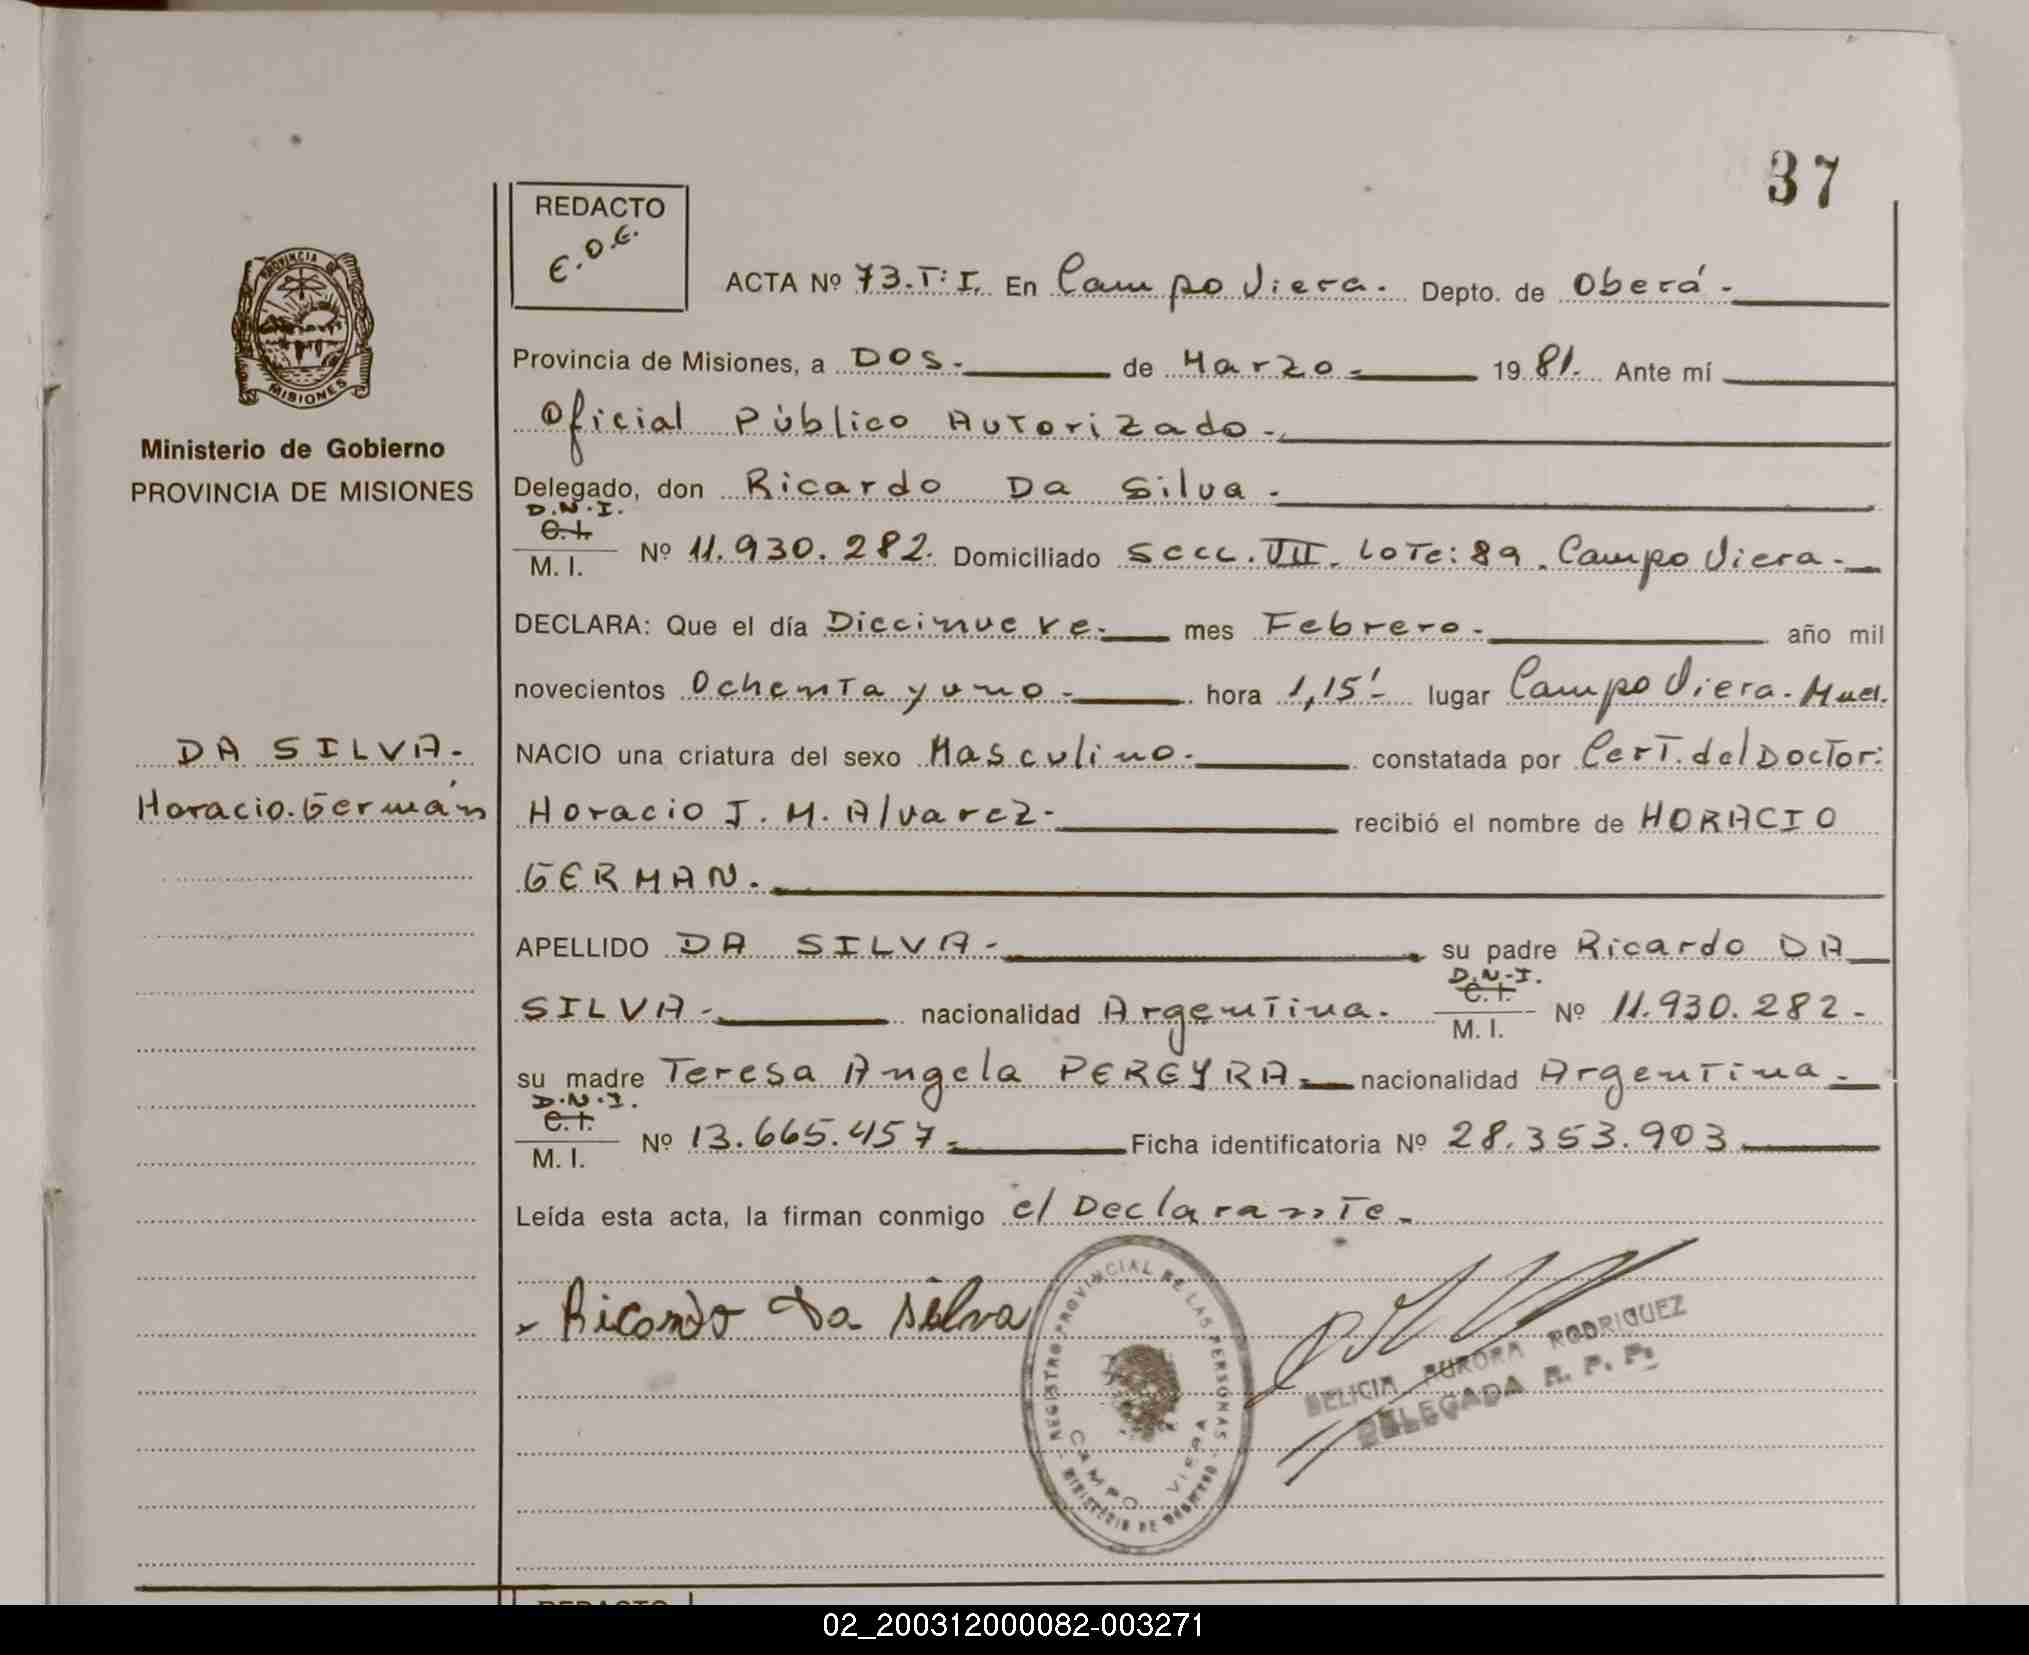 37
REDACTO
E.O.E.
PROVINCIA DE
MISIONES
ACTA Nº 73.T:I. En Campo Viera. Depto. de Oberá.
Provincia de Misiones, a DOS. de Marzo. 1981. Ante mí
Oficial Público Autorizado.
Ministerio de Gobierno
PROVINCIA DE MISIONES
Delegado, don Ricardo Da Silva.
D.N.I.
C.I.
M. I. Nº 11.930.282. Domiciliado Secc. VII. Lote: 89. Campo Viera.
DECLARA: Que el día Diecinueve. mes Febrero. año mil
novecientos Ochenta y uno. hora 1,15'- lugar Campo Viera. Mnes.
DA SILVA.
Horacio. Germán
NACIO una criatura del sexo Masculino. constatada por Cert. del Doctor:
Horacio J. M. Alvarez. recibió el nombre de HORACIO
GERMAN.
APELLIDO DA SILVA. su padre Ricardo DA
SILVA. nacionalidad Argentina. D.N.I. C.I. M. I. Nº 11.930.282.
su madre Teresa Angela PEREYRA. nacionalidad Argentina.
D.N.I.
C.I.
M. I. Nº 13.665.457. Ficha identificatoria Nº 28.353.903
Leída esta acta, la firman conmigo el Declarante.
Ricardo Da Silva
REGISTRO PROVINCIAL DE LAS PERSONAS
CAMPO VIERA
MINISTERIO DE GOBIERNO
DELICIA AURORA RODRIGUEZ
DELEGADA R. P. P.
REDACTO
02_200312000082-003271